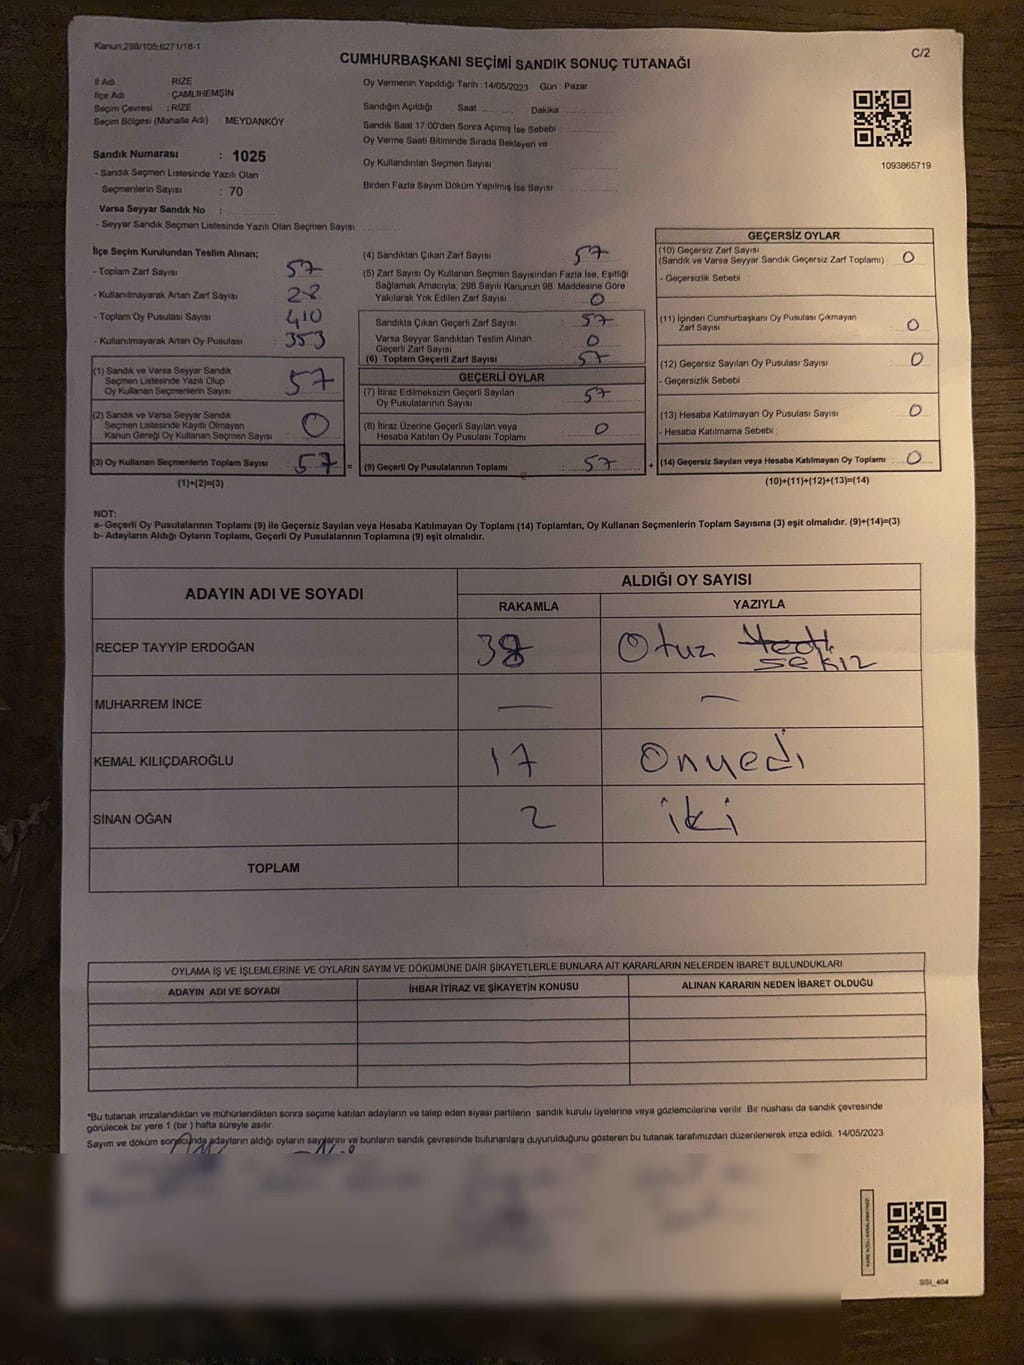 Kanun:298/105;6271/18-1
C/2
CUMHURBAŞKANI SEÇİMİ SANDIK SONUÇ TUTANAĞI
İl Adı RİZE
İlçe Adı : ÇAMLIHEMŞİN
Seçim Çevresi : RİZE
Seçim Bölgesi (Mahalle Adı) : MEYDANKÖY
Sandık Numarası : 1025
- Sandık Seçmen Listesinde Yazılı Olan
Seçmenlerin Sayısı : 70
Varsa Seyyar Sandık No :
- Seyyar Sandık Seçmen Listesinde Yazılı Olan Seçmen Sayısı:
Oy Vermenin Yapıldığı Tarih : 14/05/2023 Gün : Pazar
Sandığın Açıldığı Saat Dakika
Sandık Saat 17:00'den Sonra Açımış İse Sebebi :
Oy Verme Saati Bitiminde Sırada Bekleyen ve
Oy Kullandırılan Seçmen Sayısı
Birden Fazla Sayım Döküm Yapılmış İse Sayısı
1093865719
İlçe Seçim Kurulundan Teslim Alınan;
- Toplam Zarf Sayısı : 57
- Kullanılmayarak Artan Zarf Sayısı : 28
- Toplam Oy Pusulası Sayısı : 410
- Kullanılmayarak Artan Oy Pusulası : 353
(1) Sandık ve Varsa Seyyar Sandık
Seçmen Listesinde Yazılı Olup
Oy Kullanan Seçmenlerin Sayısı : 57
(2) Sandık ve Varsa Seyyar Sandık
Seçmen Listesinde Kayıtlı Olmayan
Kanun Gereği Oy Kullanan Seçmen Sayısı : 0
(3) Oy Kullanan Seçmenlerin Toplam Sayısı : 57 =
(1)+(2)=(3)
(4) Sandıktan Çıkan Zarf Sayısı : 57
(5) Zarf Sayısı Oy Kullanan Seçmen Sayısından Fazla İse, Eşitliği
Sağlamak Amacıyla; 298 Sayılı Kanunun 98. Maddesine Göre
Yakılarak Yok Edilen Zarf Sayısı : 0
Sandıkta Çıkan Geçerli Zarf Sayısı : 57
Varsa Seyyar Sandıktan Teslim Alınan
Geçerli Zarf Sayısı : 0
(6) Toplam Geçerli Zarf Sayısı : 57
GEÇERLİ OYLAR
(7) İtiraz Edilmeksizin Geçerli Sayılan
Oy Pusulalarının Sayısı : 57
(8) İtiraz Üzerine Geçerli Sayılan veya
Hesaba Katılan Oy Pusulası Toplamı : 0
(9) Geçerli Oy Pusulalarının Toplamı : 57 +
GEÇERSİZ OYLAR
(10) Geçersiz Zarf Sayısı
(Sandık ve Varsa Seyyar Sandık Geçersiz Zarf Toplamı) : 0
- Geçersizlik Sebebi :
(11) İçinden Cumhurbaşkanı Oy Pusulası Çıkmayan
Zarf Sayısı : 0
(12) Geçersiz Sayılan Oy Pusulası Sayısı : 0
- Geçersizlik Sebebi :
(13) Hesaba Katılmayan Oy Pusulası Sayısı : 0
- Hesaba Katılmama Sebebi :
(14) Geçersiz Sayılan veya Hesaba Katılmayan Oy Toplamı : 0
(10)+(11)+(12)+(13)=(14)
NOT:
a- Geçerli Oy Pusulalarının Toplamı (9) ile Geçersiz Sayılan veya Hesaba Katılmayan Oy Toplamı (14) Toplamları, Oy Kullanan Seçmenlerin Toplam Sayısına (3) eşit olmalıdır. (9)+(14)=(3)
b- Adayların Aldığı Oyların Toplamı, Geçerli Oy Pusulalarının Toplamına (9) eşit olmalıdır.
ADAYIN ADI VE SOYADI
ALDIĞI OY SAYISI
RAKAMLA YAZIYLA
RECEP TAYYİP ERDOĞAN 38 Otuz Yedi sekiz
MUHARREM İNCE — —
KEMAL KILIÇDAROĞLU 17 Onyedi
SİNAN OĞAN 2 iki
TOPLAM
OYLAMA İŞ VE İŞLEMLERİNE VE OYLARIN SAYIM VE DÖKÜMÜNE DAİR ŞİKAYETLERLE BUNLARA AİT KARARLARIN NELERDEN İBARET BULUNDUKLARI
ADAYIN ADI VE SOYADI İHBAR İTİRAZ VE ŞİKAYETİN KONUSU ALINAN KARARIN NEDEN İBARET OLDUĞU
*Bu tutanak imzalandıktan ve mühürlendikten sonra seçime katılan adayların ve talep eden siyasi partilerin sandık kurulu üyelerine veya gözlemcilerine verilir. Bir nüshası da sandık çevresinde
görülecek bir yere 1 (bir ) hafta süreyle asılır.
Sayım ve döküm sonucunda adayların aldığı oyların sayılarını ve bunların sandık çevresinde bulunanlara duyurulduğunu gösteren bu tutanak tarafımızdan düzenlenerek imza edildi. 14/05/2023
SSI_404